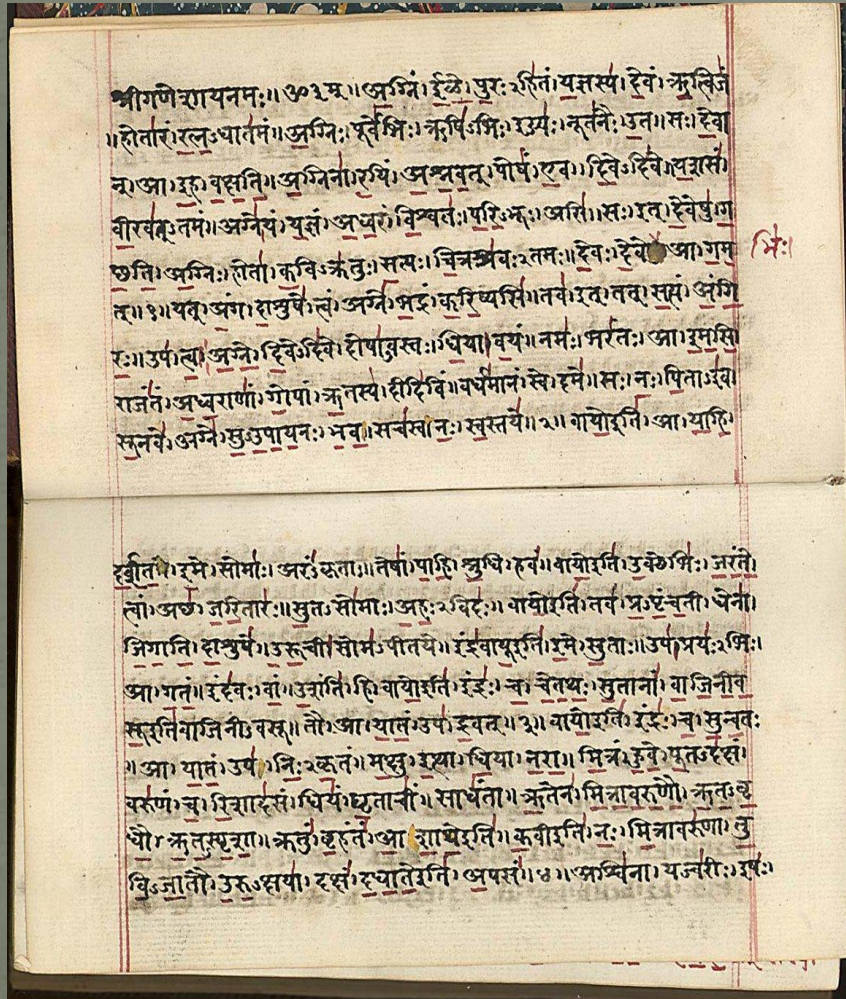 श्रीगणेशायनमः॥ॐ३म्॥अ॒ग्निं।ई॒ळे॒।पु॒रःऽहि॑तं।य॒ज्ञस्य॑।दे॒वं।ऋ॒त्विजं॑
॥होता॑रं।र॒त्न॒ऽधात॑मं॥अ॒ग्निः।पूर्वे॑भिः।ऋषि॑ऽभिः।ईड्यः॑।नूत॑नैः।उ॒त॥सः।दे॒वा
न्।आ।इ॒ह।व॒क्ष॒ति॒॥अ॒ग्निना॑।र॒यिं।अ॒श्न॒व॒त्।पोषं॑।ए॒व।दि॒वेऽदि॑वे॥य॒शसं॑।
वी॒रव॑त्ऽतमं॥अग्ने॑।यं।य॒ज्ञं।अ॒ध्व॒रं।वि॒श्वतः॑।प॒रि॒ऽभूः।असि॑॥सः।इत्।दे॒वेषु॑।ग॒
च्छ॒ति॒।अ॒ग्निः।होता॑।क॒विऽक्र॑तुः।स॒त्यः।चि॒त्रश्र॑वःऽतमः॥दे॒वः।दे॒वे आ।ग॒म॒
भिः॑।
त्॥१॥यत्।अं॒ग।दा॒शुषे॑।त्वं।अग्ने॑।भ॒द्रं।क॒रि॒ष्यसि॑॥तव॑।इत्।तत्।स॒त्यं।अं॒गि॒
रः॒॥उप॑।त्वा॒।अ॒ग्ने॒।दि॒वेऽदि॑वे।दोषा॑ऽवस्तः।धि॒या।व॒यं॥नमः॑।भरं॑तः।आ।इ॒म॒सि॒॥
राजं॑तं।अ॒ध्व॒राणां॑।गो॒पां।ऋ॒तस्य॑।दीदि॑विं॥वर्ध॑मानं।स्वे।दमे॑॥सः।नः॒।पि॒ताऽइ॑व।
सू॒नवे॑।अग्ने॑।सु॒ऽउ॒पा॒य॒नः।भ॒व॒॥सच॑स्व।नः॒।स्व॒स्तये॑॥२॥वायो॒इति॑।आ।या॒हि॒।
द॒र्श॒त॒।इ॒मे।सोमाः॑।अरं॑ऽकृताः॥तेषां॑।पा॒हि॒।श्रु॒धि।हवं॑॥वायो॒इति॑।उ॒क्थेभिः॑।ज॒रं॒ते॒।
त्वां।अच्छ॑।ज॒रि॒तारः॑॥सु॒तऽसो॑माः।अ॒हः॒ऽविदः॑॥वायो॒इति॑।तव॑।प्र॒ऽपृं॒च॒ती।धेना॑।
जि॒गा॒ति॒।दा॒शुषे॑॥उ॒रू॒ची।सोम॑ऽपीतये॥इंद्र॑वायू॒इति॑।इ॒मे।सु॒ताः॥उप॑।प्रयः॑ऽभिः।
आ।ग॒तं॒॥इंद॑वः।वां॒।उ॒शंति॑।हि॥वायो॒इति॑।इंद्रः॑।च॒।चे॒त॒थः॒।सु॒तानां॑।वा॒जि॒नी॒व॒
सू॒इति॑वाजिनीऽवसू॥तौ।आ।या॒तं॒।उप॑।द्र॒वत्॥३॥वायो॒इति॑।इंद्रः॑।च॒।सु॒न्व॒तः
॥आ।या॒तं॒।उप॑।निः॒ऽकृ॒तं॥म॒क्षु।इ॒त्था।धि॒या।न॒रा॒॥मि॒त्रं।हु॒वे॒।पू॒तऽद॑क्षं।
वरु॑णं।च॒।रि॒शाद॑सं॥धियं॑।घृ॒ताचीं॑।साधं॑ता॥ऋ॒तेन॑।मि॒त्रा॒व॒रु॒णौ॒।ऋ॒त॒ऽवृ॒
धौ॒।ऋ॒त॒ऽस्पृ॒शा॒॥क्रतुं॑।बृ॒हंतं॑।आ॒शा॒थे॒इति॑॥क॒वी॒इति॑।नः॒।मि॒त्रावरु॑णा।तु॒
वि॒ऽजा॒तौ।उ॒रु॒ऽक्षया॑।दक्षं॑।द॒धा॒ते॒इति॑।अ॒पसं॑॥४॥अश्वि॑ना।यज्व॑रीः।इषः॑।